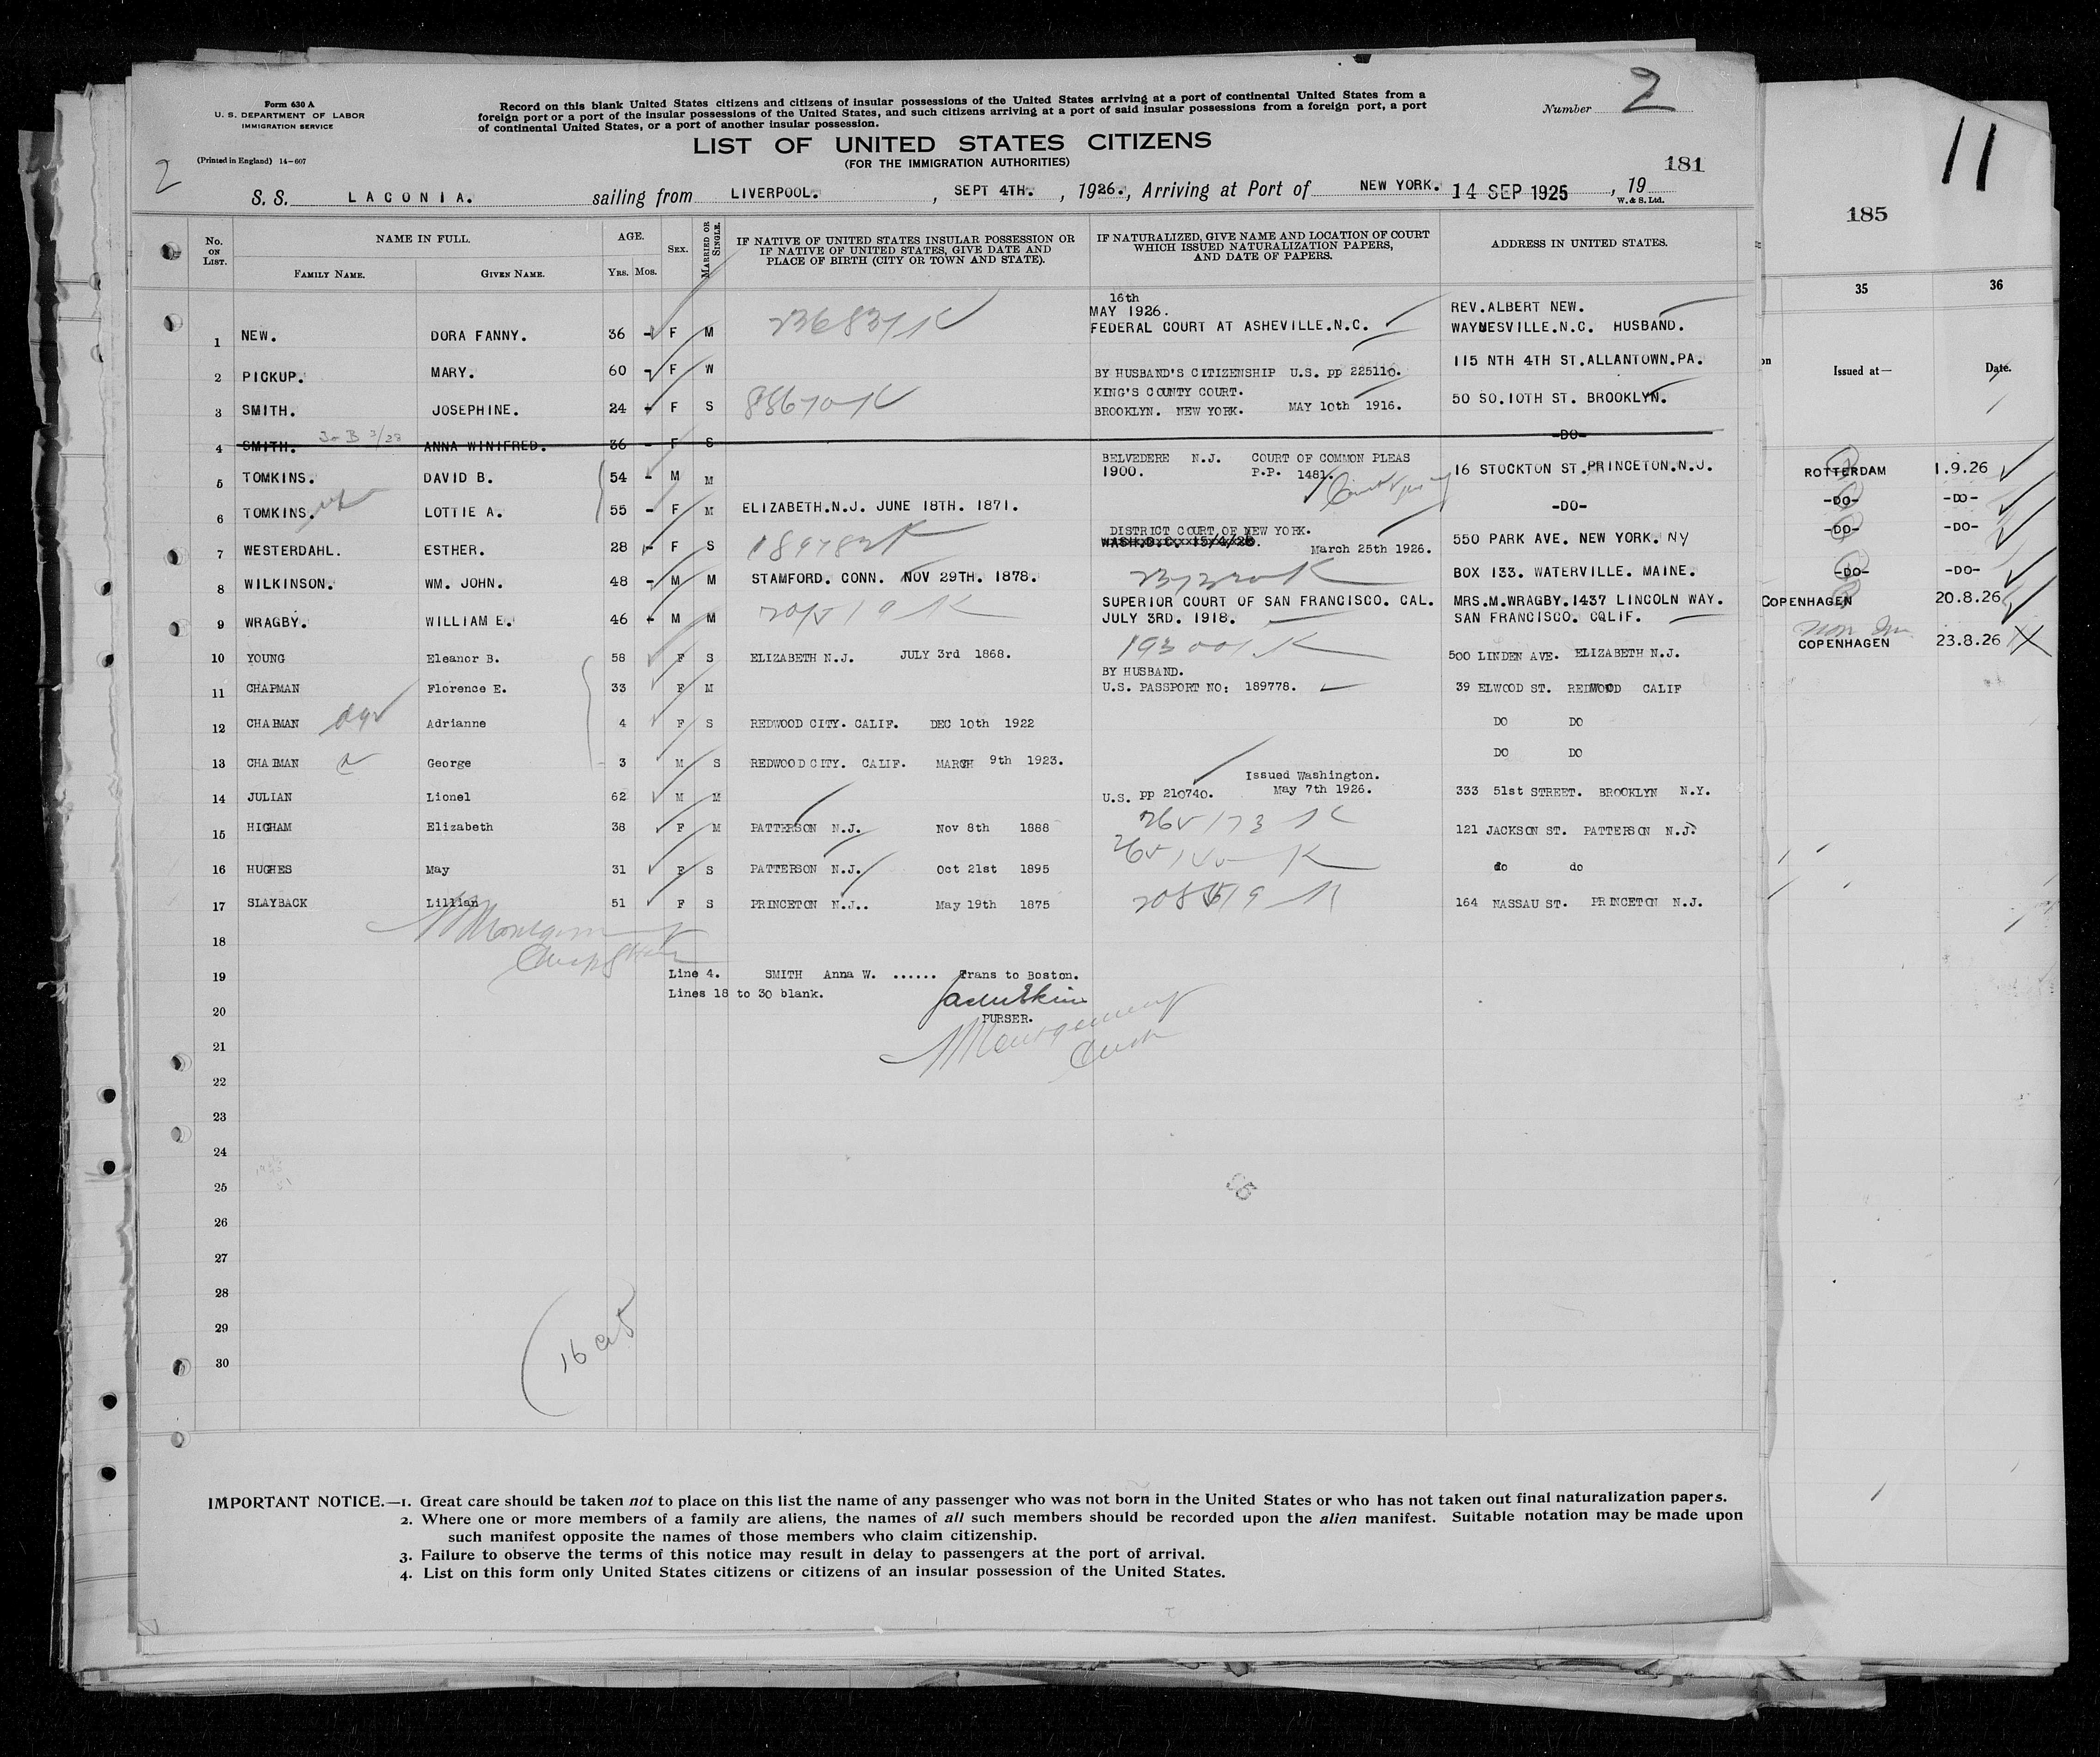 Form 630 A
U. S. DEPARTMENT OF LABOR
IMMIGRATION SERVICE
(Printed in England) 14-607
Record on this blank United States citizens and citizens of insular possessions of the United States arriving at a port of continental United States from a
foreign port or a port of the insular possessions of the United States, and such citizens arriving at a port of said insular possessions from a foreign port, a port
of continental United States, or a port of another insular possession.
Number 2
LIST OF UNITED STATES CITIZENS
(FOR THE IMMIGRATION AUTHORITIES)
181
2
S. S. LACONIA. sailing from LIVERPOOL. , SEPT 4TH. , 1926., Arriving at Port of NEW YORK. 14 SEP 1925 , 19
W. & S. Ltd.
No. ON LIST.
NAME IN FULL.
FAMILY NAME.
GIVEN NAME.
AGE.
YRS. MOS.
SEX.
MARRIED OR SINGLE.
IF NATIVE OF UNITED STATES INSULAR POSSESSION OR
IF NATIVE OF UNITED STATES, GIVE DATE AND
PLACE OF BIRTH (CITY OR TOWN AND STATE).
IF NATURALIZED, GIVE NAME AND LOCATION OF COURT
WHICH ISSUED NATURALIZATION PAPERS,
AND DATE OF PAPERS.
ADDRESS IN UNITED STATES.
16th
MAY 1926. REV.ALBERT NEW.
1 NEW. DORA FANNY. 36 - F M 236837 K FEDERAL COURT AT ASHEVILLE.N.C. WAYNESVILLE.N.C. HUSBAND.
2 PICKUP. MARY. 60 - F W BY HUSBAND'S CITIZENSHIP U.S. pp 225110. 115 NTH 4TH ST.ALLANTOWN.PA.
KING'S COUNTY COURT.
3 SMITH. JOSEPHINE. 24 - F S BROOKLYN. NEW YORK. MAY 10th 1916. 50 SO.10TH ST. BROOKLYN.
4 SMITH. ANNA WINIFRED. 36 - F S -DO-
BELVEDERE N.J. COURT OF COMMON PLEAS
5 TOMKINS. DAVID B. 54 - M M 1900. P.P. 1481. 16 STOCKTON ST.PRINCETON.N.J.
6 TOMKINS. LOTTIE A. 55 - F M ELIZABETH.N.J. JUNE 18TH. 1871. -DO-
DISTRICT COURT OF NEW YORK.
7 WESTERDAHL. ESTHER. 28 - F S WASH.D.C.xx15/4/26. March 25th 1926. 550 PARK AVE. NEW YORK. NY
8 WILKINSON. WM. JOHN. 48 - M M STAMFORD. CONN. NOV 29TH. 1878. BOX 133. WATERVILLE. MAINE.
SUPERIOR COURT OF SAN FRANCISCO. CAL. MRS.M.WRAGBY.1437 LINCOLN WAY.
9 WRAGBY. WILLIAM E. 46 - M M JULY 3RD. 1918. SAN FRANCISCO. CQLIF.
10 YOUNG Eleanor B. 58 F S ELIZABETH N.J. JULY 3rd 1868. 193001 K 500 LINDEN AVE. ELIZABETH N.J.
BY HUSBAND.
11 CHAPMAN Florence E. 33 F M U.S. PASSPORT NO: 189778. 39 ELWOOD ST. REDWOOD CALIF
12 CHAPMAN Adrianne 4 F S REDWOOD CITY. CALIF. DEC 10th 1922 DO DO
13 CHAPMAN George 3 M S REDWOOD CITY. CALIF. MARCH 9th 1923. DO DO
Issued Washington.
14 JULIAN Lionel 62 M M U.S. pp 210740. May 7th 1926. 333 51st STREET. BROOKLYN N.Y.
15 HIGHAM Elizabeth 38 F M PATTERSON N.J. Nov 8th 1888 121 JACKSON ST. PATTERSON N.J.
16 HUGHES May 31 F S PATTERSON N.J. Oct 21st 1895 do do
17 SLAYBACK Lillian 51 F S PRINCETON N.J.. May 19th 1875 164 NASSAU ST. PRINCETON N.J.
18
19 Line 4. SMITH Anna W. ...... Trans to Boston.
Lines 18 to 30 blank.
20 PURSER.
21
22
23
24
25
26
27
28
29
30
IMPORTANT NOTICE.—1. Great care should be taken not to place on this list the name of any passenger who was not born in the United States or who has not taken out final naturalization papers.
2. Where one or more members of a family are aliens, the names of all such members should be recorded upon the alien manifest. Suitable notation may be made upon
such manifest opposite the names of those members who claim citizenship.
3. Failure to observe the terms of this notice may result in delay to passengers at the port of arrival.
4. List on this form only United States citizens or citizens of an insular possession of the United States.
11
185
35 36
Issued at— Date.
ROTTERDAM 1.9.26
-DO- -DO-
-DO- -DO-
-DO- -DO-
COPENHAGEN 20.8.26
COPENHAGEN 23.8.26